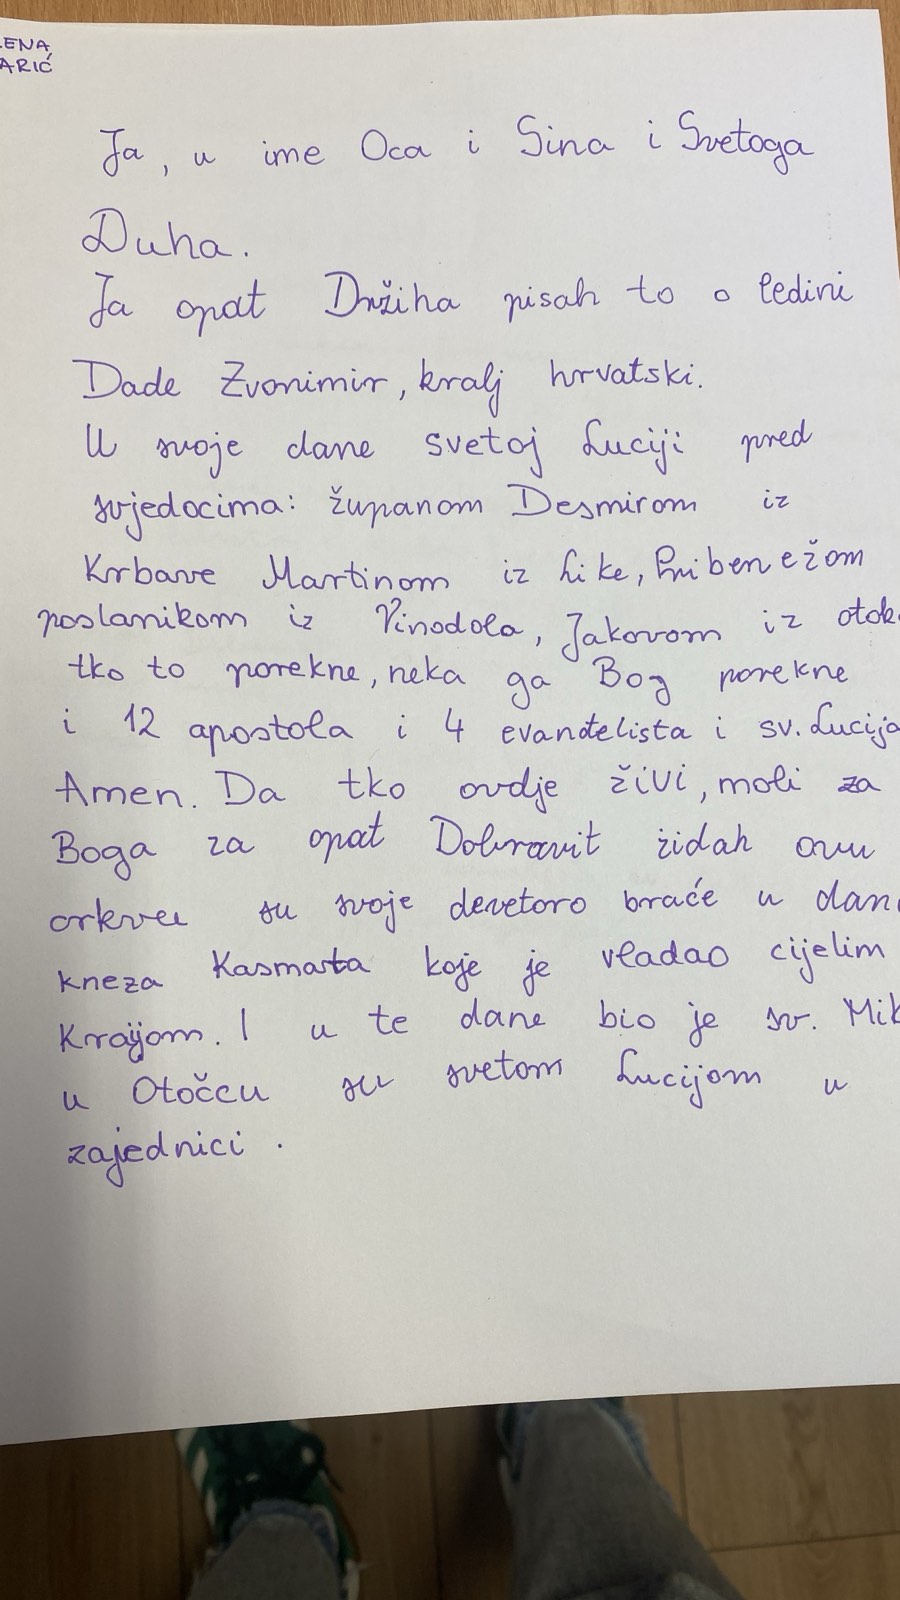 ENA
ARIĆ
Ja, u ime Oca i Sina i Svetoga
Duha.
Ja opat Držiha pisah to o ledini
Dade Zvonimir, kralj hrvatski.
U svoje dane svetoj Luciji pred
svjedocima: županom Desmirom iz
Krbave Martinom iz Like, Pribenežom
poslanikom iz Vinodola, Jakovom iz otok
tko to porekne, neka ga Bog porekne
i 12 apostola i 4 evanđelista i sv. Lucija
Amen. Da tko ovdje živi, moli za
Boga za opat Dobravit zidah ovu
crkvu su svoje devetoro braće u dan
kneza Kasmata koje je vladao cijelim
Krajjom. I u te dane bio je sv. Mik
u Otočcu su svetom Lucijom u
zajednici.